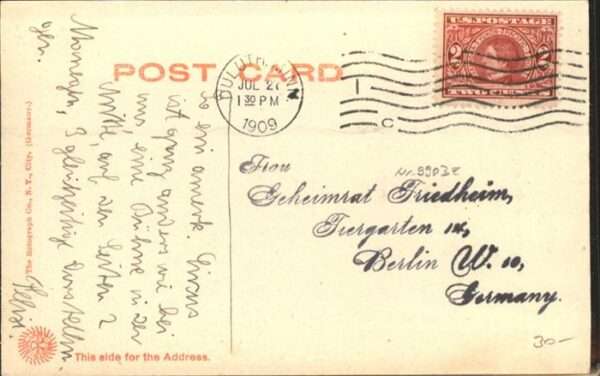 POST CARD
U.S. POSTAGE
2
2
TWO CENTS
DULUTH, MINN
JUL 27
1 30 PM
1909
C
So ein amerik. Circus
ist ganz anders wie bei
uns, eine Bühne in der
Mitte, auf den Seiten 2
Manegen, 3 gleichzeitige Vorstellun
gen.
Frau
Geheimrat Friedheim,
Tiergarten
Berlin W. 10,
Germany.
30-
The Rotograph Co., N. Y., City. (Germany.)
This side for the Address.